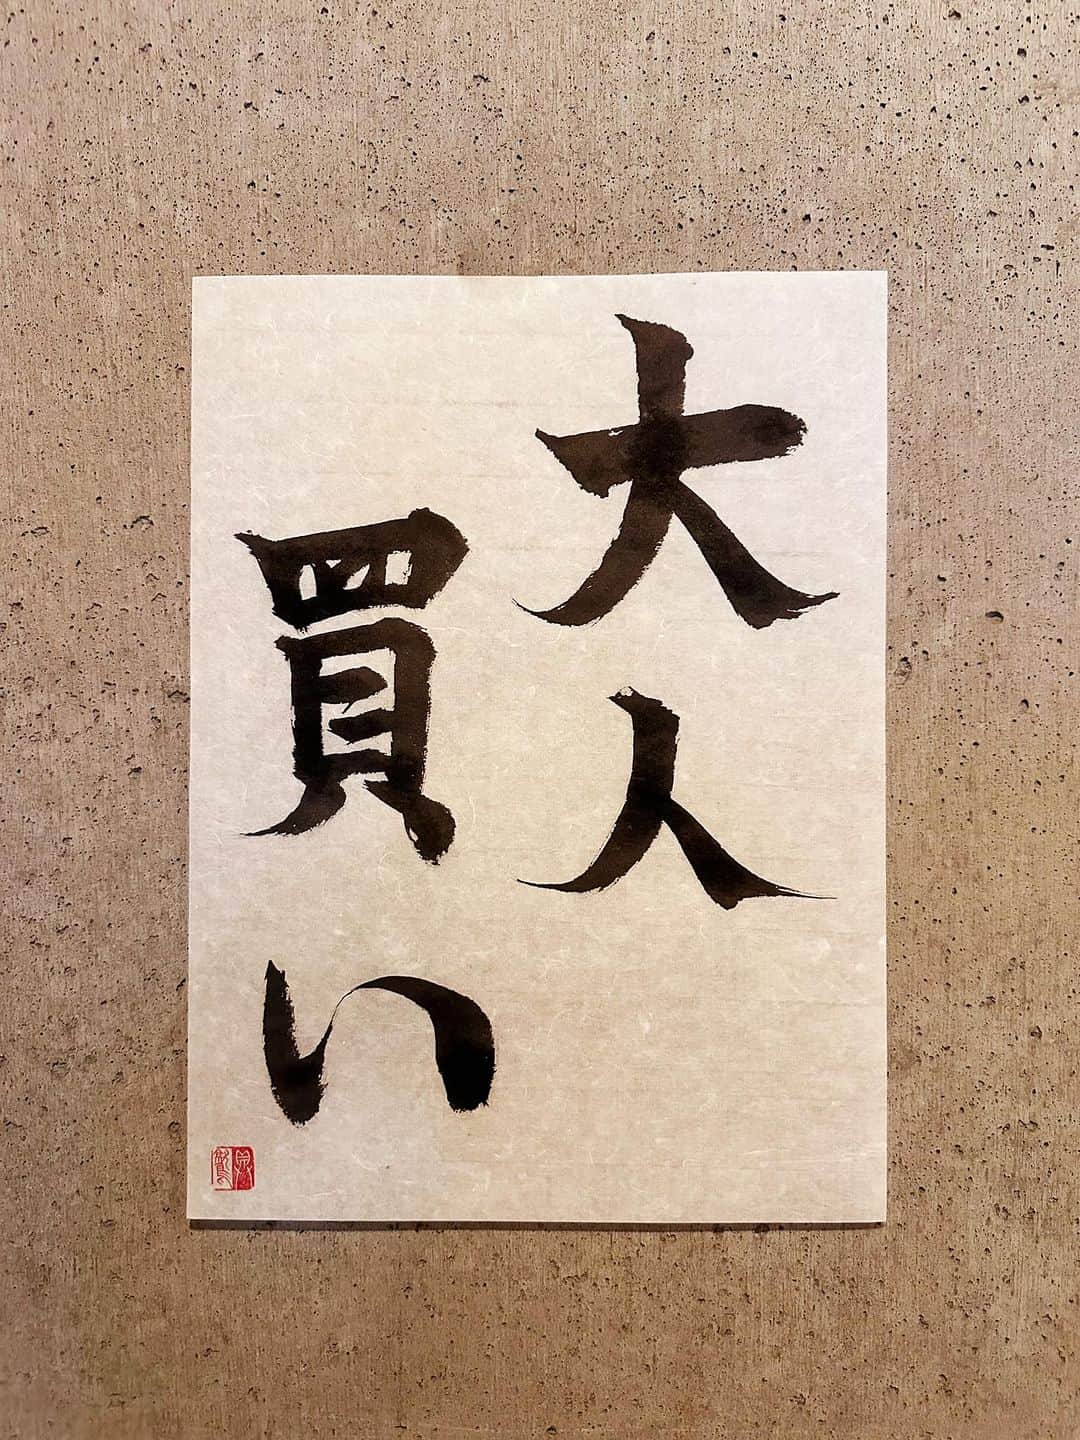 大人
買い